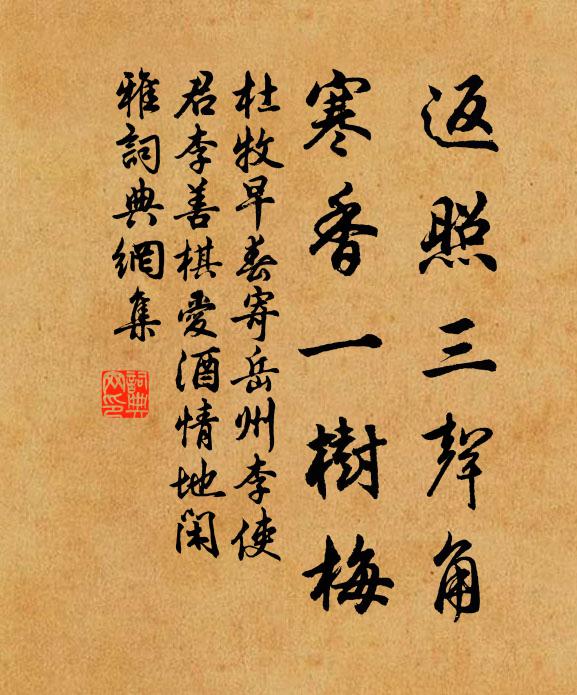 返照三聲角
寒香一樹梅
杜牧早春寄岳州李使
君李善棋愛酒情地閑
雅詞典網集
詞典網印